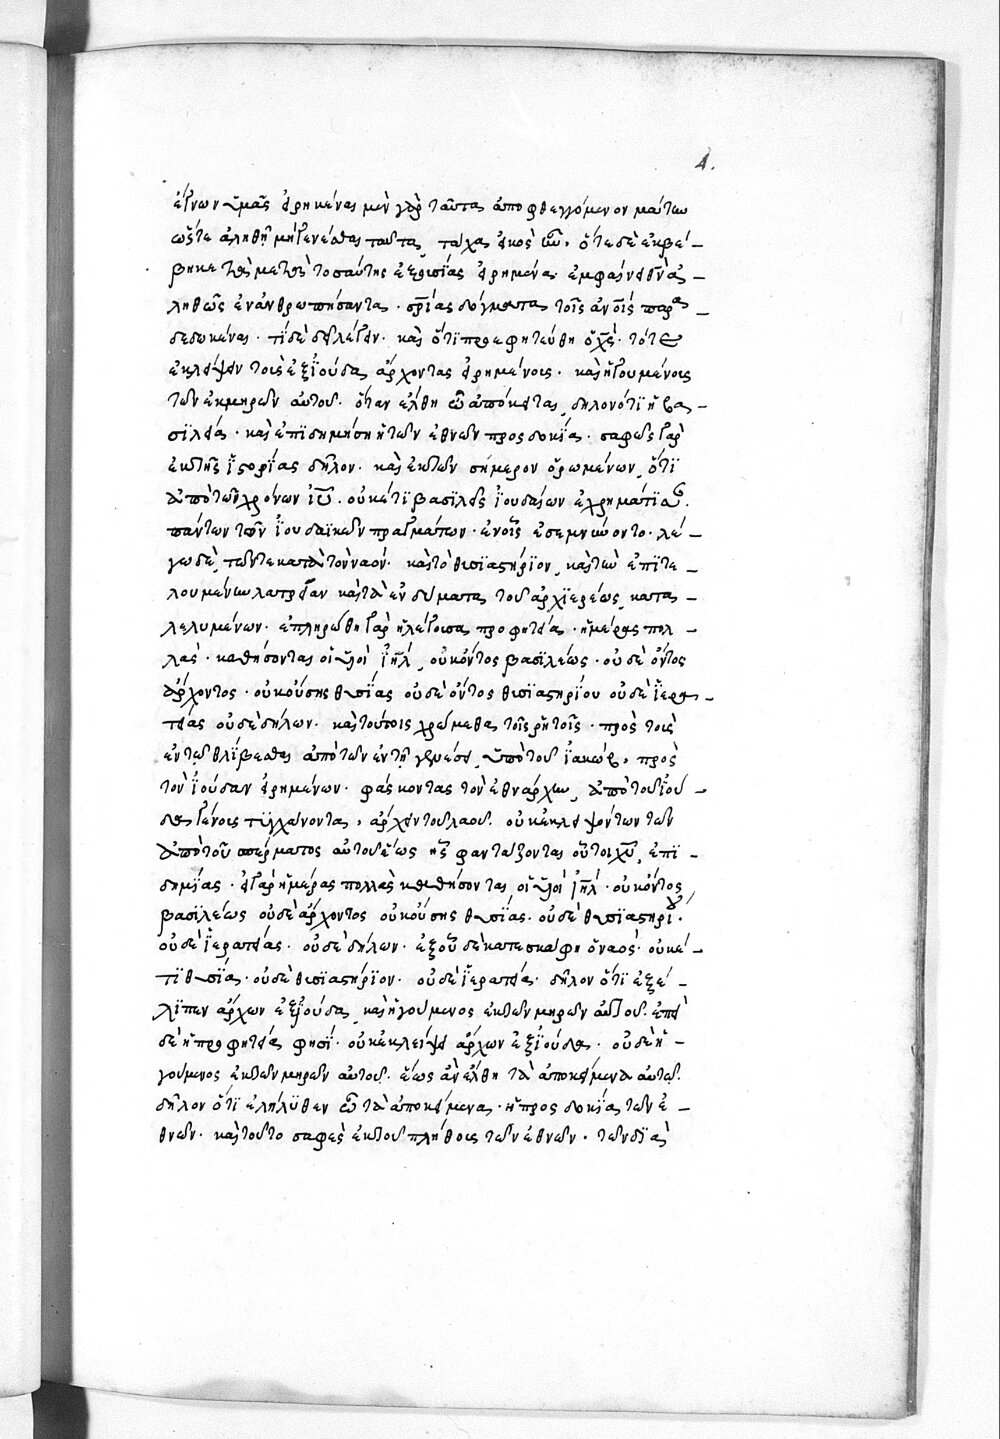 4.
ἔγνων ὑμᾶς εἰρηκέναι μὲν γὰρ ταῦτα ἀποφθεγγόμενον μάτην
ὥστε ἀληθῆ μὴ γενέσθαι ταῦτα, τάχα εἰκὸς ἦν, ὅτε δὲ ἐκβέ-
βηκε τὰ μετὰ τοσαύτης ἐξουσίας εἰρημένα ἐμφαίνει θν ἀ-
ληθῶς ἐνανθρωπήσαντα. σρίας δόγματα τοῖς ανοις παρα-
δεδωκέναι. τί δὲ δεῖ λέγειν. καὶ ὅτι προεφητεύθη ὁ χς. τότε
ἐκλείψειν τοὺς ἐξ ϊούδα ἄρχοντας εἰρημένοις. καὶ ἡγουμένοις
τῶν ἐκ μηρῶν αὐτοῦ. ὅταν ἔλθη ὦ ἀπόκειται, δηλονότι ἡ βα-
σϊλεία. καὶ ἐπϊδημήση ἡ τῶν ἐθνῶν προσδοκία. σαφῶς γὰρ
ἐκ τῆς ϊστορίας δῆλον. καὶ ἐκ τῶν σήμερον ὁρωμένων, ὅτϊ
ἀπὸ τῶν χρόνων ιυ. οὐκέτϊ βασϊλεῖς ϊουδαίων ἐχρημάτϊσ.
πάντων τῶν ϊουδαϊκῶν πραγμάτων. ἐν οἷς ἐσεμνύνοντο. λέ-
γω δὲ, τῶν τε κατὰ τὸν ναόν. καὶ τὸ θυσϊαστήρϊον, καὶ τὴν ἐπϊτε-
λουμένων λατρείαν καὶ τὰ ἐνδύματα τοῦ ἀρχϊερέως, κατα-
λελυμένων. ἐπληρώθη γὰρ ἡ λέγουσα προφητεία. ἡμέρας πολ-
λὰς. καθήσονται οἱ υἱοὶ ιηλ, οὐκ ὄντος βασϊλέως. οὐδὲ ὄντος
ἄρχοντος. οὐκ οὔσης θυσϊας οὐδὲ ὄντος θυσϊαστηρίου οὐδὲ ϊερα-
τείας οὐδὲ δήλων. καὶ τούτοις χρώμεθα τοῖς ῥητοῖς. πρὸς τοὺς
ἐν τῷ θλίβεσθαι ἀπὸ τῶν ἐν τῆ γενέσει, ὑπὸ τοῦ ϊακώβ, πρὸς
τὸν ϊούδαν εἰρημένων. φάσκοντας τὸν ἐθνάρχην, ἀπὸ τοῦ ϊού-
δα γένους τϋγχάνοντα, ἄρχειν τοῦ λαοῦ. οὐκ ἐκλειψόντων τῶν
ἀπὸ τοῦ σπέρματος αὐτοῦ ἕως ἧς φαντάζονται οὗτοι χυ, ἐπϊ-
δημίας. εἰ γὰρ ἡμέρας πολλὰς καθήσονται, οἱ υἱοὶ ιηλ. οὐκ ὄντος,
βασϊλέως οὐδὲ ἄρχοντος οὐκ οὔσης θυσϊας. οὐδὲ θυσϊαστηρίου.
οὐδὲ ϊερατείας. οὐδὲ δήλων. ἐξ οὗ δὲ κατεσκάφη ὁ ναός. οὐκέ-
τϊ θυσϊα. οὐδὲ θυσϊαστήρϊον. οὐδὲ ϊερατεία. δῆλον ὅτϊ ἐξέ-
λϊπεν ἄρχων ἐξ ϊούδα, καὶ ἡγούμενος ἐκ τῶν μηρῶν αὐτοῦ. ἐπεὶ
δὲ ἡ προφητεία φησϊ. οὐκ ἐκλείψει ἄρχων ἐξ ϊούδα. οὐδὲ ἡ-
γούμενος ἐκ τῶν μηρῶν αὐτοῦ. ἕως ἂν ἔλθη τὰ ἀποκείμενα αὐτῷ.
δῆλον ὅτϊ ἐλήλϋθεν ὦ τὰ ἀποκείμενα. ἡ προσδοκία τῶν ἐ-
θνῶν. καὶ τοῦτο σαφὲς ἐκ τοῦ πλήθους τῶν ἐθνῶν. τῶν δϊὰ